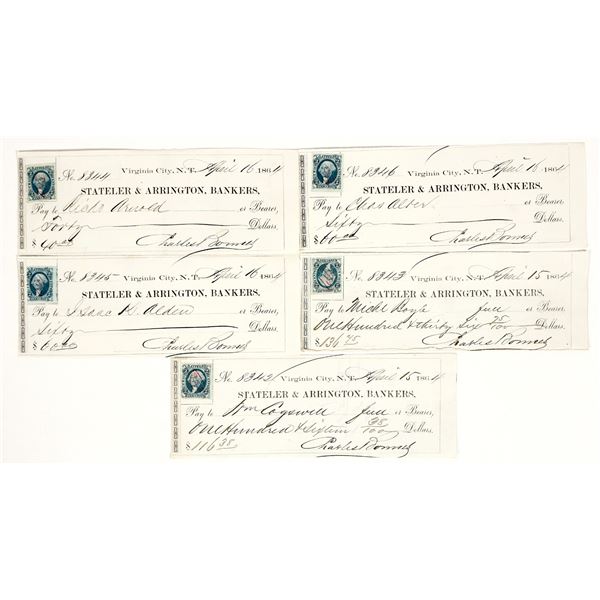 No. 8344 Virginia City, N.T. April 16 1864
STATELER & ARRINGTON, BANKERS,
Pay to Nich Arnold or Bearer,
Forty Dollars,
$40.00 Charles Bonner
No. 8346 Virginia City, N.T. April 16 1864
STATELER & ARRINGTON, BANKERS,
Pay to Chas Alter or Bearer,
Sixty Dollars,
$60.00 Charles Bonner
No. 8345 Virginia City, N.T. April 16 1864
STATELER & ARRINGTON, BANKERS,
Pay to Isaac Alden or Bearer,
Sixty Dollars,
$60.00 Charles Bonner
No. 8343 Virginia City, N.T. April 15 1864
STATELER & ARRINGTON, BANKERS,
Pay to Michl Boyle full or Bearer,
One Hundred & thirty six 75/100 Dollars,
$136 75 Charles Bonner
No. 8342 Virginia City, N.T. April 15 1864
STATELER & ARRINGTON, BANKERS,
Pay to Wm Cogswell full or Bearer,
One Hundred & Sixteen 38/100 Dollars,
$116 38 Charles Bonner